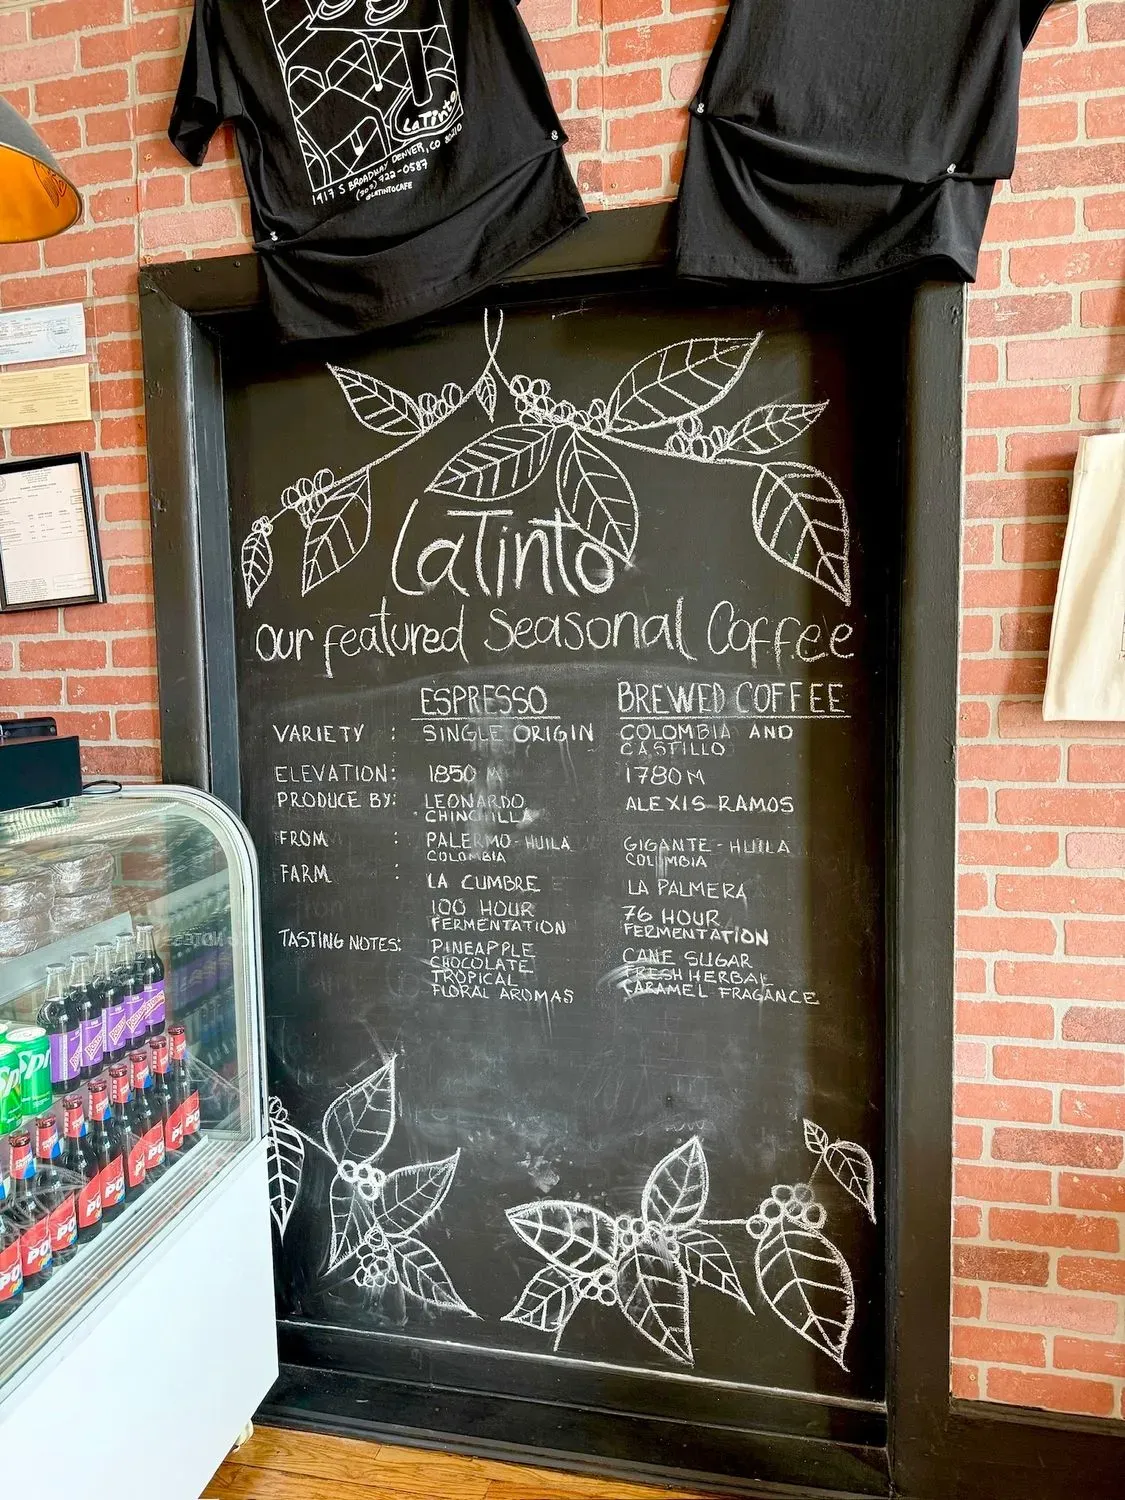 LaTinto
1417 S BROADWAY DENVER, CO 80210
(303) 722-0587
@LATINTOCAFE
LaTinto
our featured Seasonal Coffee
ESPRESSO BREWED COFFEE
VARIETY : SINGLE ORIGIN COLOMBIA AND
CASTILLO
ELEVATION: 1850 M 1780M
PRODUCE BY: LEONARDO ALEXIS RAMOS
CHINCHILLA
FROM : PALERMO-HUILA GIGANTE-HUILA
COLOMBIA COLOMBIA
FARM : LA CUMBRE LA PALMERA
100 HOUR 76 HOUR
FERMENTATION FERMENTATION
TASTING NOTES: PINEAPPLE CANE SUGAR
CHOCOLATE FRESH HERBAL
TROPICAL CARAMEL FRAGANCE
FLORAL AROMAS